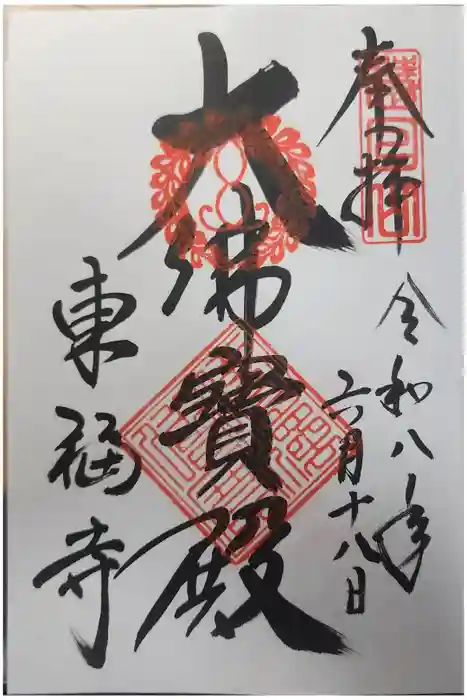 奉拝
令和八年
六月十八日
大佛寶殿
東福寺